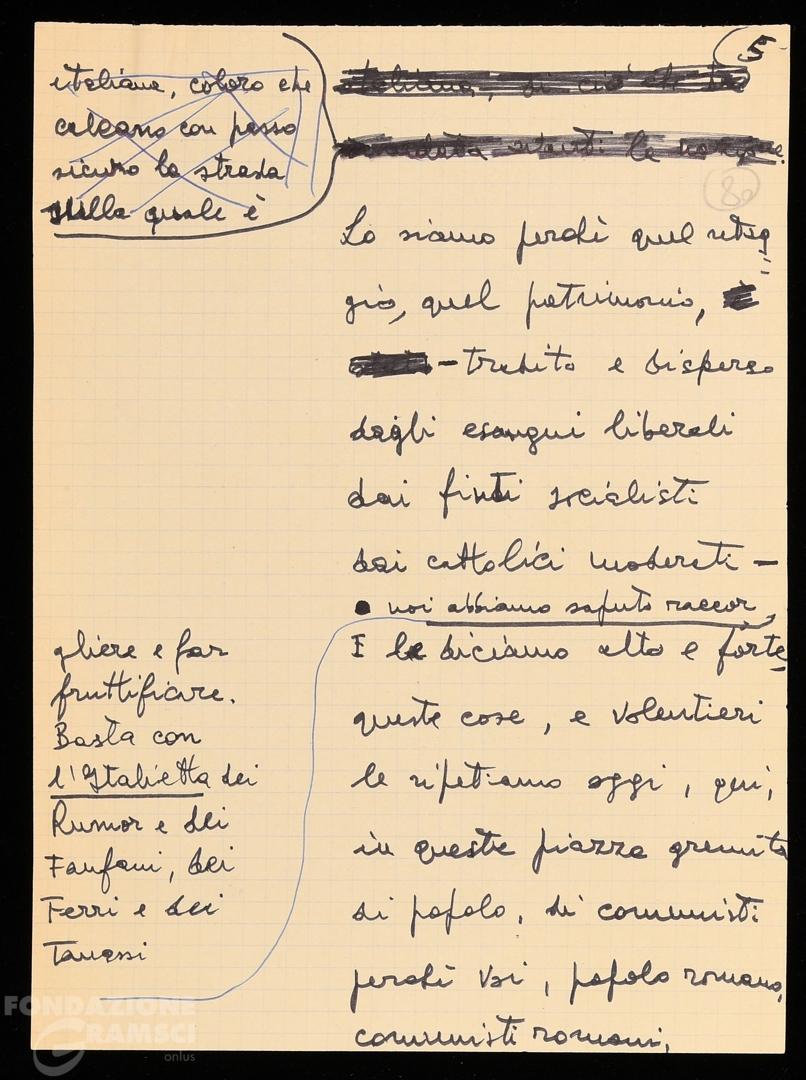 5
italiana, coloro che
calcano con passo
sicuro la strada
sulla quale è
italiana, di ciò che
avanti la nazione.
80
Lo siamo perchè quel retag
gio, quel patrimonio, è
- tradito e disperso
dagli esangui liberali
dai finti socialisti
dai cattolici moderati -
noi abbiamo saputo raccor
gliere e far
fruttificare.
Basta con
l'Italietta dei
Rumor e dei
Fanfani, dei
Ferri e dei
Tanassi
E le diciamo alto e forte
queste cose, e volentieri
le ripetiamo oggi, qui,
in questa piazza gremita
di popolo, di comunisti
perchè voi, popolo romano,
comunisti romani,
FONDAZIONE
GRAMSCI
onlus